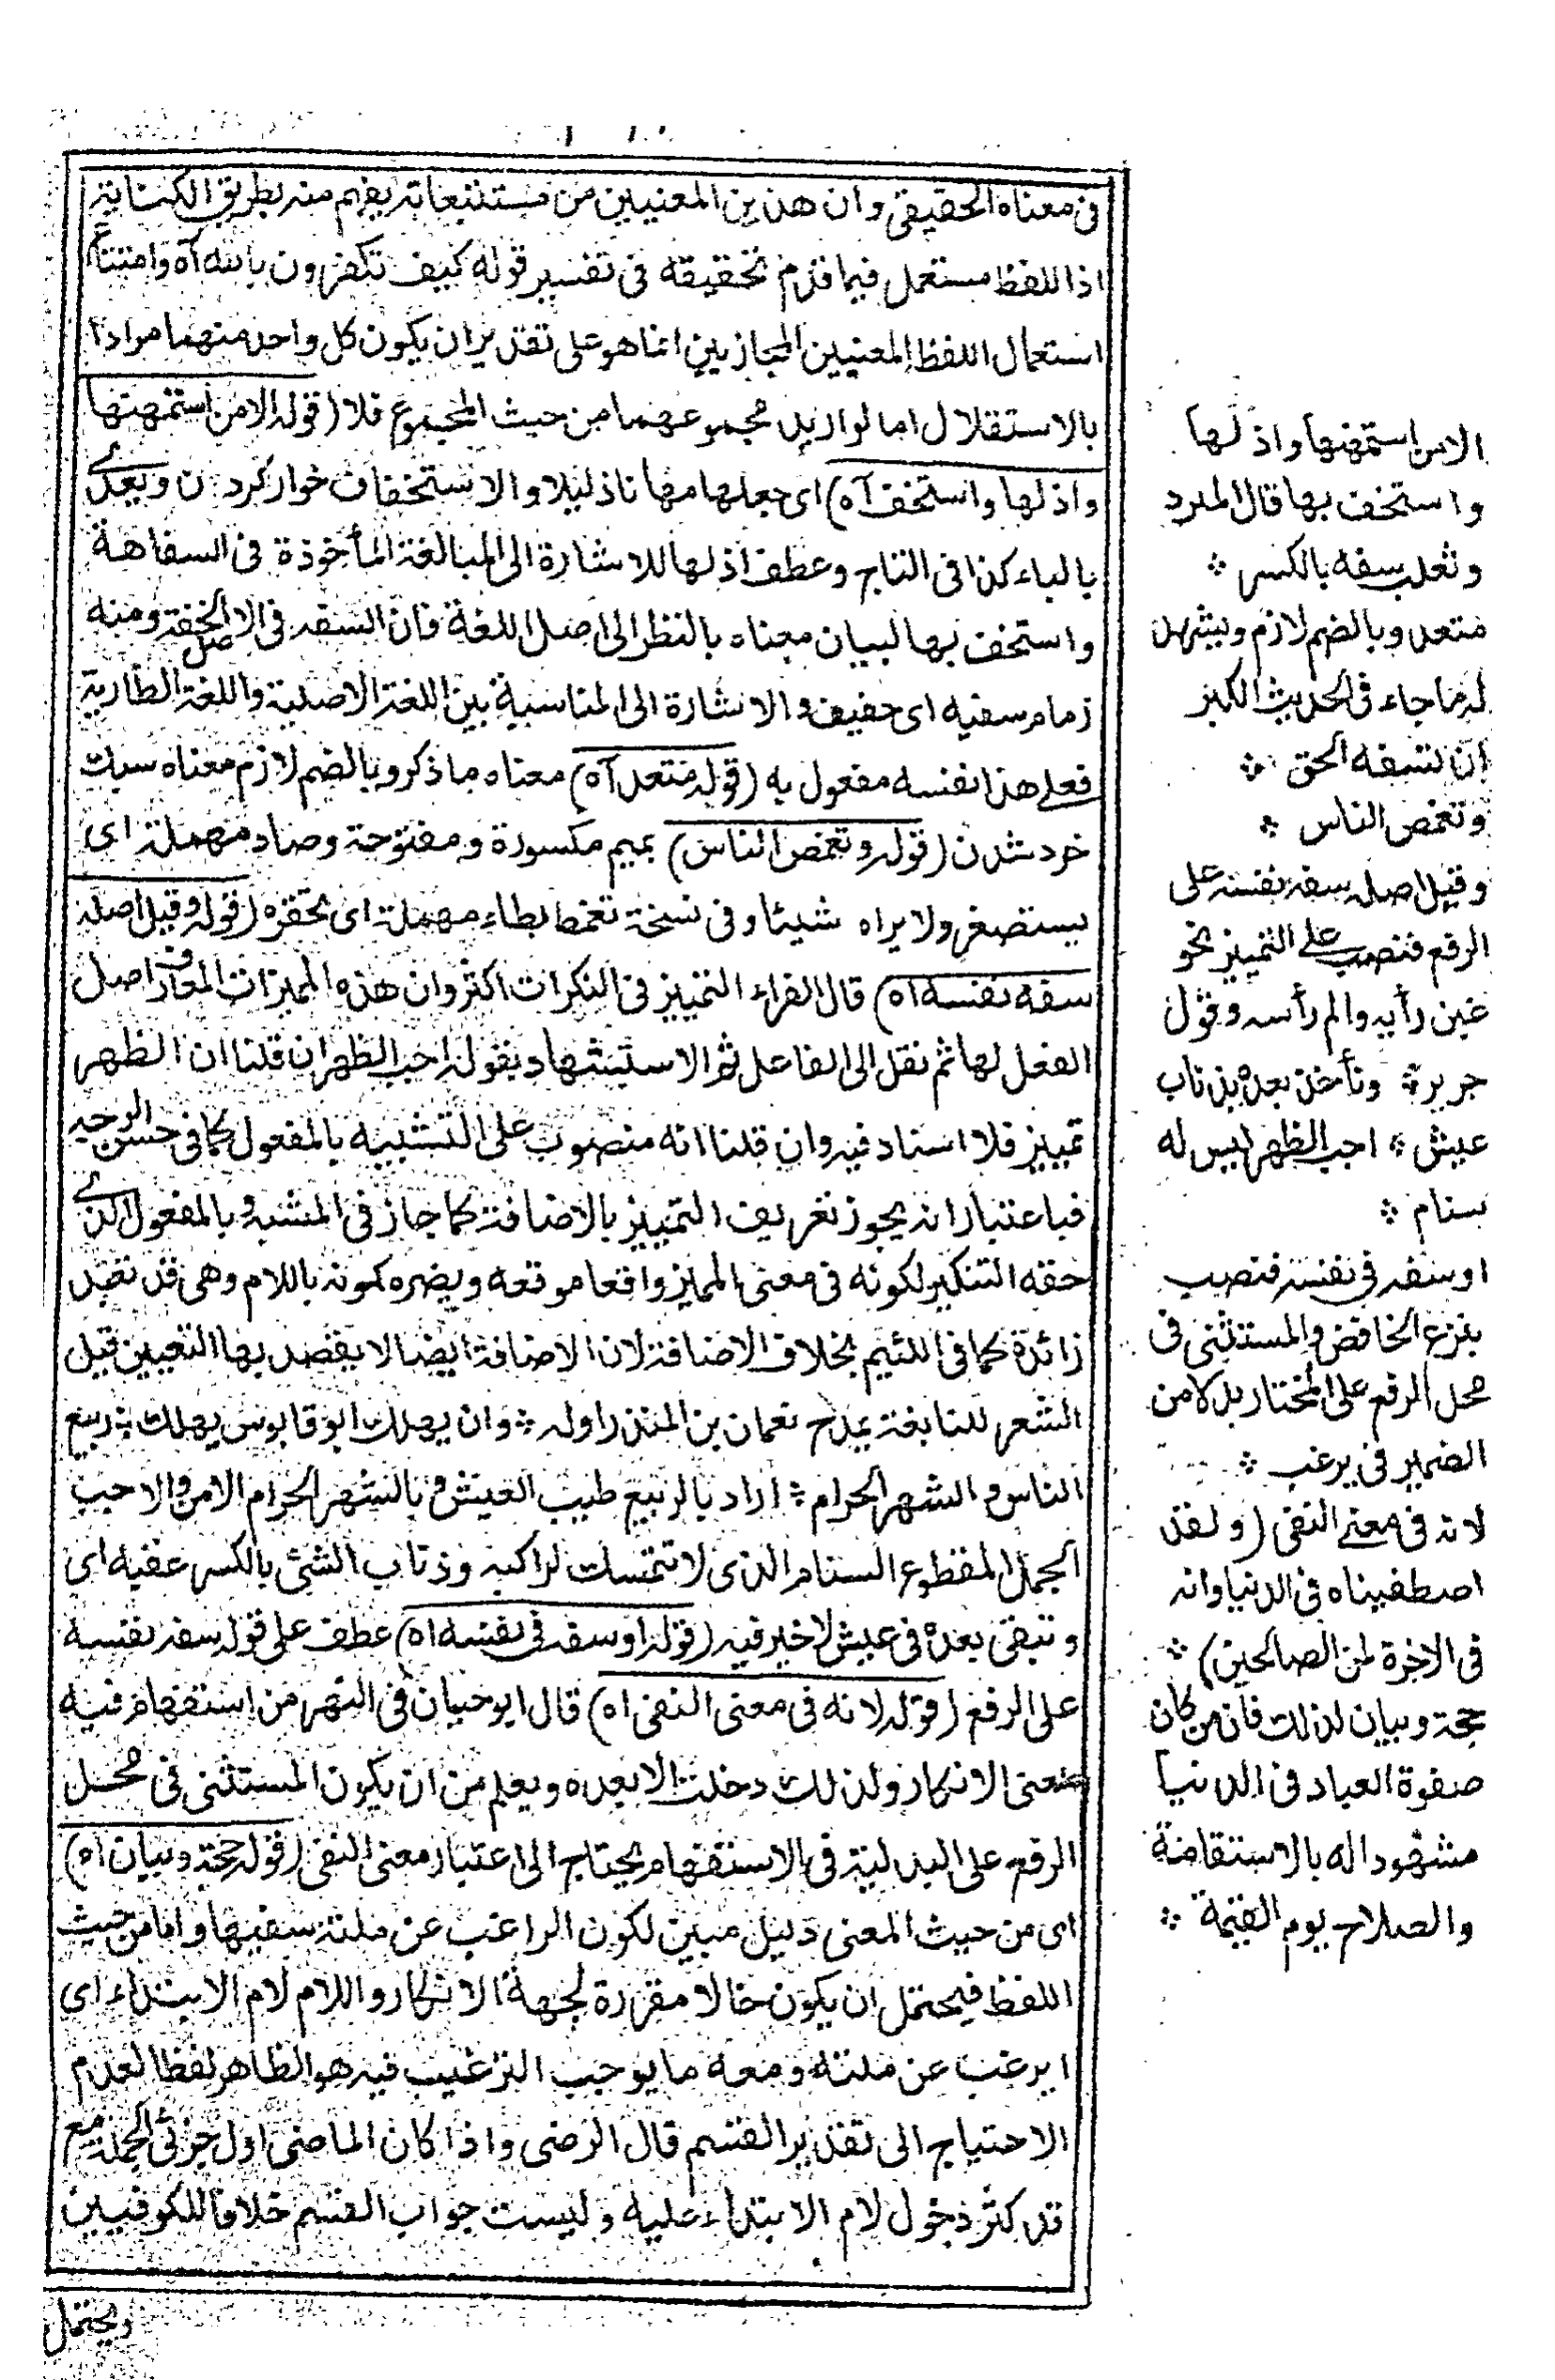 فى معناه الحقيقى وان هذين المعنيين من مستتبعاته يفهم منه بطريق الكناية
اذ اللفظ مستعمل فيما قدم تحقيقه فى تفسير قوله كيف تكفرون بالله آه وامتناع
استعمال اللفظ المعنيين المجازيين انما هو على تقدير ان يكون كل واحد منهما مرادا
بالاستقلال اما لو اريد مجموعهما من حيث المجموع فلا (قوله الا من استمهنها
واذلها واستخف آه) اى جعلها مهانا ذليلا والاستخفاف خوار كردن ويعدى
بالباء كذا فى التاج وعطف اذلها للاشارة الى المبالغة المأخوذة فى السفاهة
واستخف بها لبيان معناه بالنظر الى اصل اللغة فان السفه فى الاصل الخفة ومنه
زمام سفيه اى خفيف والاشارة الى المناسبة بين اللغة الاصلية واللغة الطارية
فعلى هذا نفسه مفعول به (قوله متعد آه) معناه ما ذكر وبالضم لازم معناه سبك
خرد شدن (قوله وتغمص الناس) بميم مكسورة ومفتوحة وصاد مهملة اى
يستصغر ولا يراه شيئا وفى نسخة تغمط بطاء مهملة اى تحقره (قوله وقيل اصله
سفه نفسه اه) قال الفراء التمييز فى النكرات اكثر وان هذه المميزات المعارف اصل
الفعل لها ثم نقل الى الفاعل ثم الاستشهاد بقوله اجب الظهر ان قلنا ان الظهر
تمييز فلا اسناد فيه وان قلنا انه منصوب على التشبيه بالمفعول كما فى حسن الوجه
فباعتبار انه يجوز تعريف التمييز بالاضافة كما جاز فى المشبه بالمفعول الذى
حقه التنكير لكونه فى معنى المميز واقعا موقعه ويضره كونه باللام وهى قد تصير
زائدة كما فى اللئيم بخلاف الاضافة لان الاضافة ايضا لا يقصد بها التعيين قيل
الشعر للنابغة يمدح نعمان بن المنذر اوله ؞ وان يهلك ابو قابوس يهلك ؞ ربيع
الناس والشهر الحرام ؞ اراد بالربيع طيب العيش وبالشهر الحرام الامن والاجب
الجمل المقطوع السنام الذى لا تتمسك لراكبه وذناب الشئ بالكسر عقبه اى
وتبقى بعده فى عيش لا خير فيه (قوله او سفه فى نفسه اه) عطف على قوله سفه نفسه
على الرفع (قوله لانه فى معنى النفى اه) قال ابو حيان فى النهر من استفهام فيه
معنى الانكار ولذلك دخلت الا بعده ويعلم من ان يكون المستثنى فى محل
الرفع على البدلية فى الاستفهام يحتاج الى اعتبار معنى النفى (قوله حجة وبيان اه)
اى من حيث المعنى دليل مبين لكون الراغب عن ملته سفيها واما من حيث
اللفظ فيحتمل ان يكون حالا مقررة لجهة الانكار واللام لام الابتداء اى
ايرغب عن ملته ومعه ما يوجب الترغيب فيه هو الظاهر لفظا لعدم
الاحتياج الى تقدير القسم قال الرضى واذا كان الماضى اول جزئى الجملة مع
قد كثر دخول لام الابتداء عليه وليست جواب القسم خلافا للكوفيين
ويحتمل
الا من استمهنها واذلها
واستخف بها قال المبرد
وثعلب سفه بالكسر ؞
متعد وبالضم لازم ويشهد
له ما جاء فى الحديث الكبر
ان تسفه الحق ؞
وتغمص الناس ؞
وقيل اصله سفه نفسه على
الرفع فنصب على التمييز نحو
غبن رأيه والم رأسه وقول
جرير ؞ ونأخذ بعده بذناب
عيش ؞ اجب الظهر ليس له
سنام ؞
او سفه فى نفسه فنصب
بنزع الخافض والمستثنى فى
محل الرفع على المختار بدلا من
الضمير فى يرغب ؞
لانه فى معنى النفى (ولقد
اصطفيناه فى الدنيا وانه
فى الاخرة لمن الصالحين) ؞
حجة وبيان لذلك فان من كان
صفوة العباد فى الدنيا
مشهودا له بالاستقامة
والصلاح يوم القيمة ؞